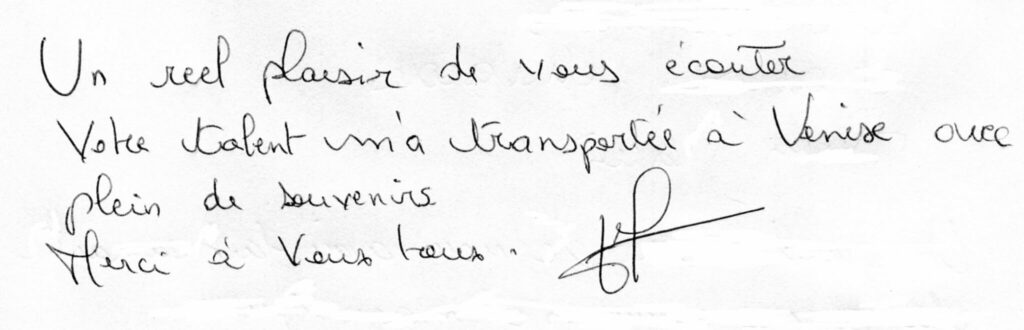 Un reel plaisir de vous écouter
Votre talent m'a transportée à Venise avec
plein de souvenirs
Merci à Vous tous.